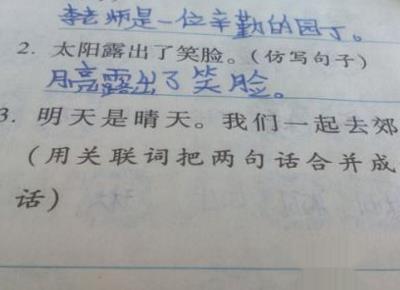 李老师是一位辛勤的园丁。
2. 太阳露出了笑脸。(仿写句子)
月亮露出了笑脸。
3. 明天是晴天。我们一起去郊
(用关联词把两句话合并成
话)